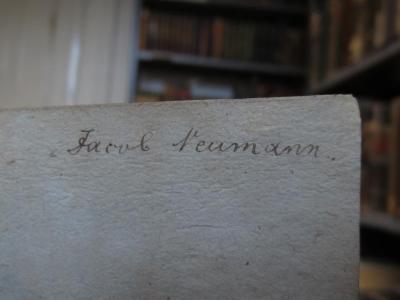 Jacob Neumann.